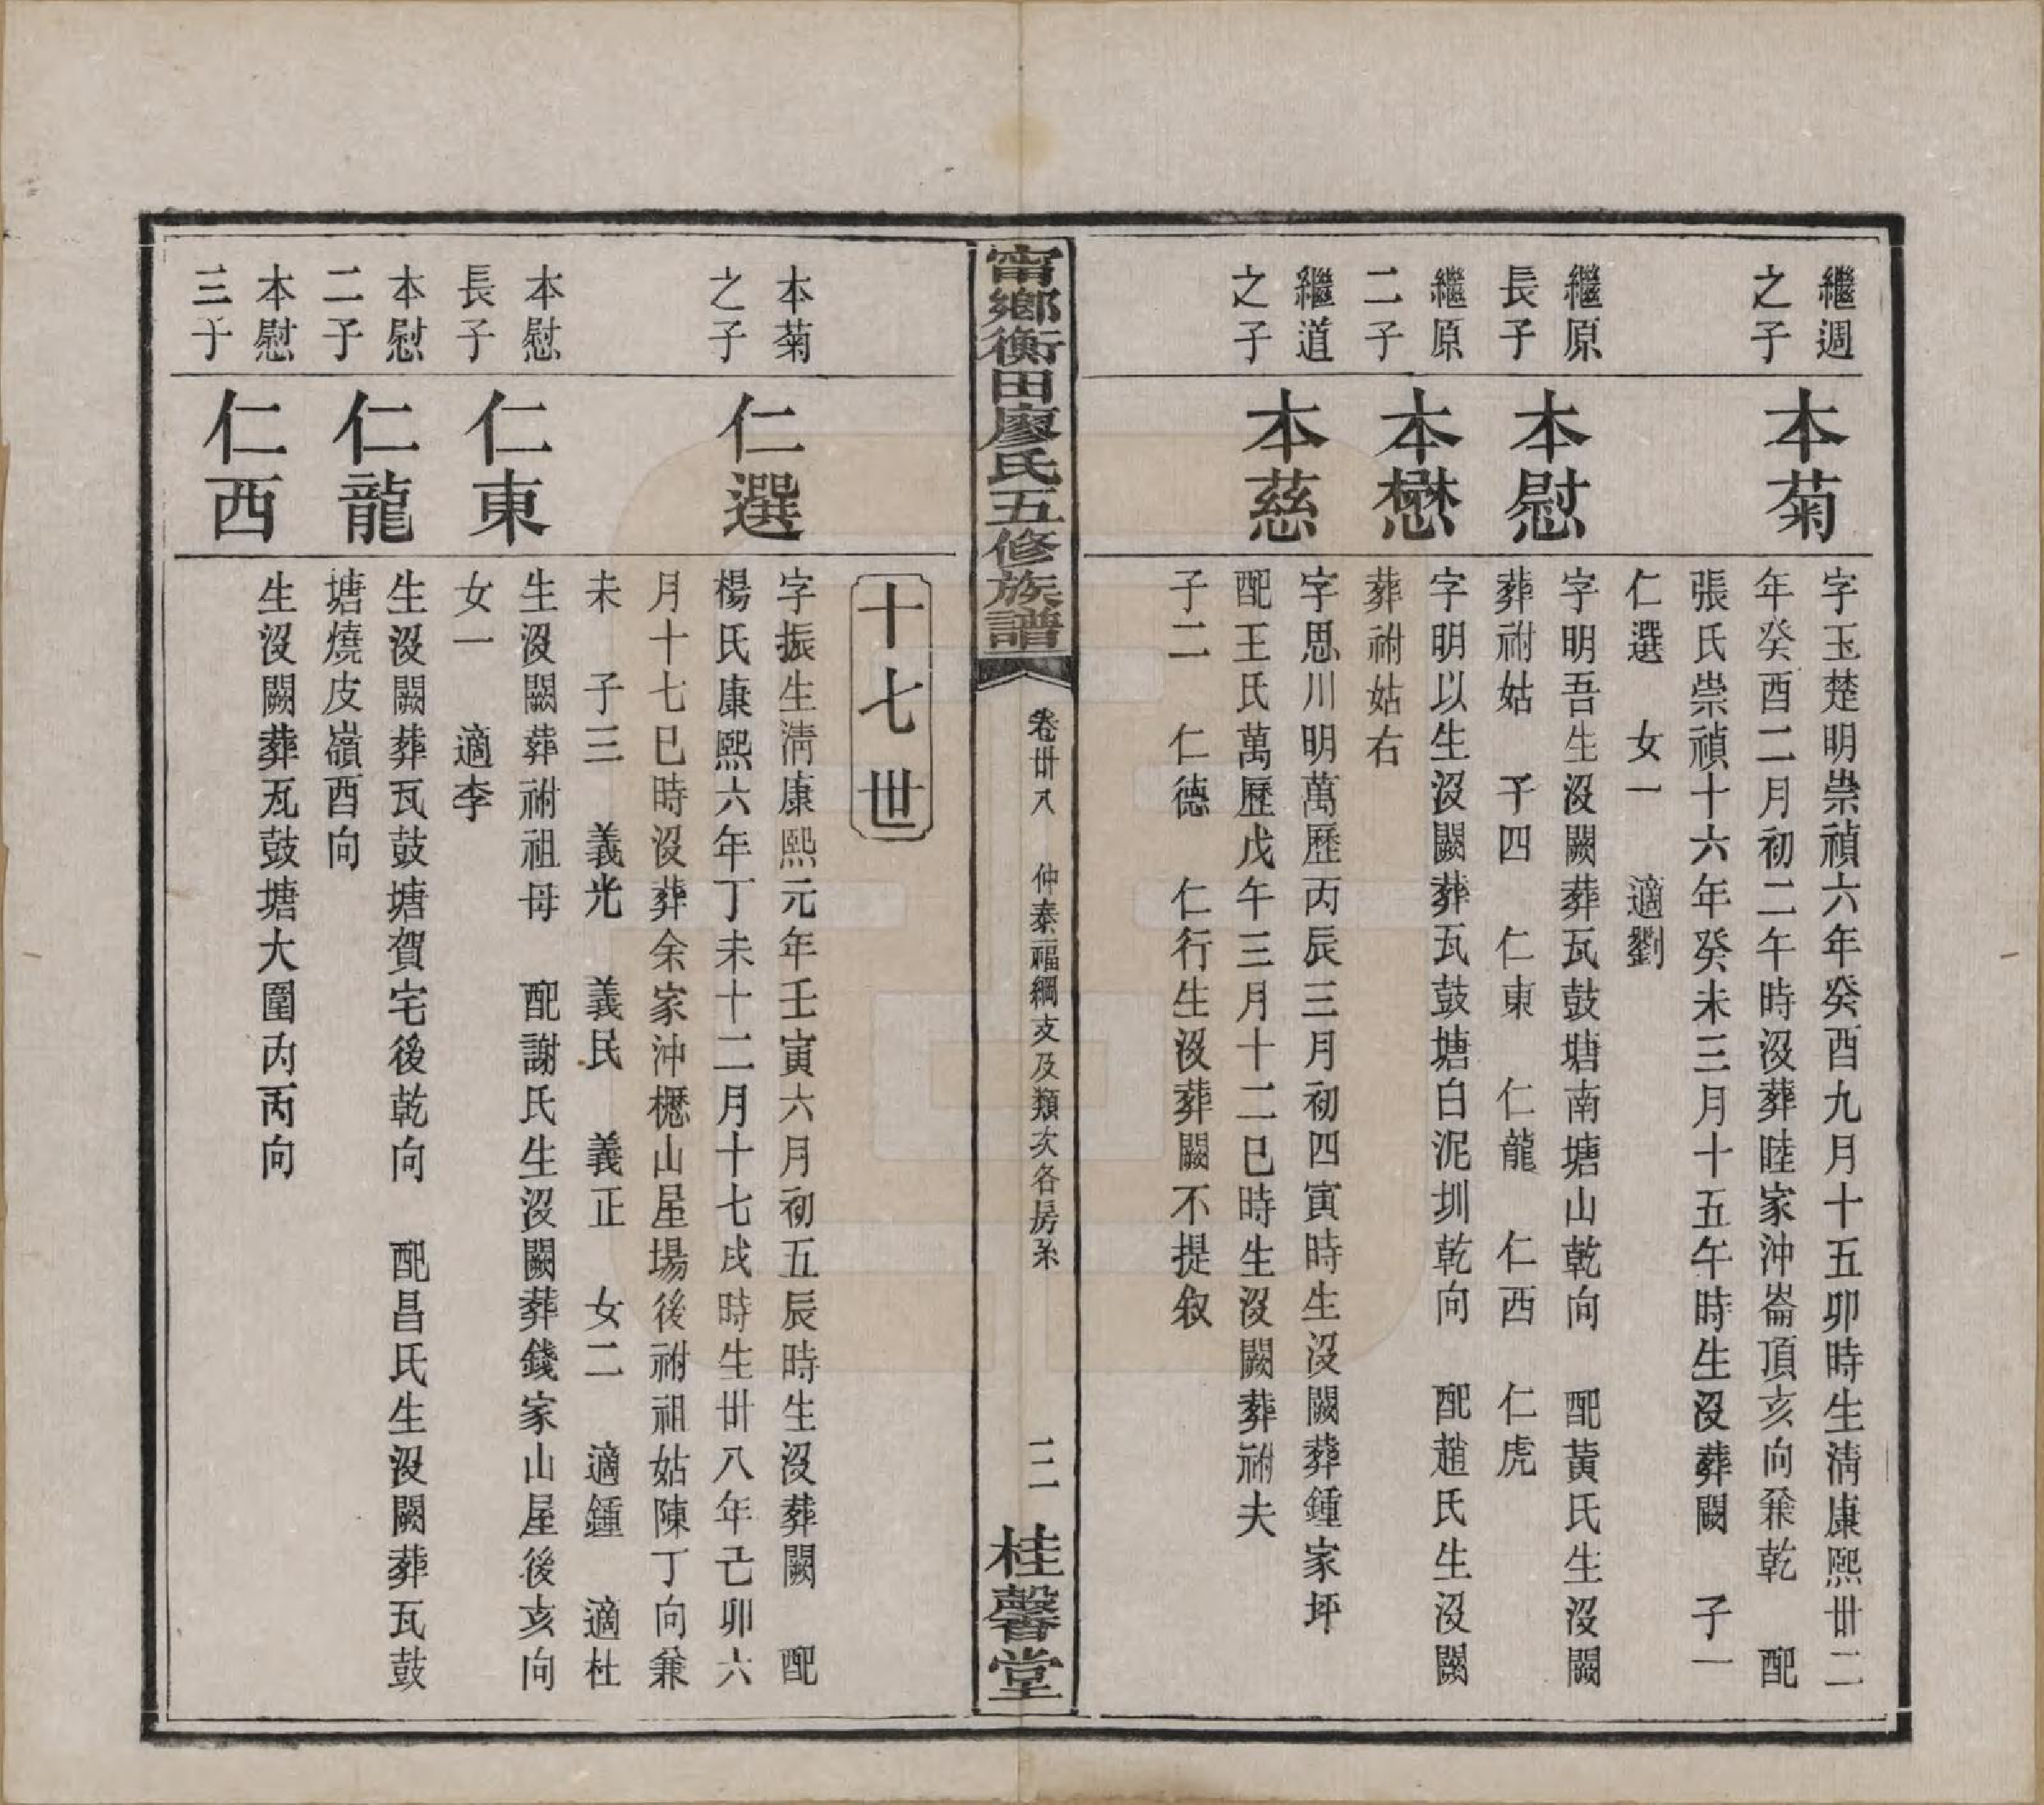 繼週
之子
本菊
字玉楚明崇禎六年癸酉九月十五卯時生淸康熙卅二
年癸酉二月初二午時沒葬睦家沖崙頂亥向兼乾　配
張氏崇禎十六年癸未三月十五午時生沒葬闕　子一
仁選　女一　適劉
繼原
長子
本慰
字明吾生沒闕葬瓦鼓塘南塘山乾向　配黃氏生沒闕
葬祔姑　子四　仁東　仁龍　仁西　仁虎
繼原
二子
本懋
字明以生沒闕葬瓦鼓塘白泥圳乾向　配趙氏生沒闕
葬祔姑右
繼道
之子
本慈
字思川明萬歷丙辰三月初四寅時生沒闕葬鍾家坪
配王氏萬歷戊午三月十二巳時生沒闕葬祔夫
子二　仁德　仁行生沒葬闕不提叙
甯鄉衡田廖氏五修族譜
卷卅八　仲泰福綱支及類次各房系
三
桂馨堂
十七世
本菊
之子
仁選
字振生淸康熙元年壬寅六月初五辰時生沒葬闕　配
楊氏康熙六年丁未十二月十七戌時生卅八年己卯六
月十七巳時沒葬余家沖櫪山星場後祔祖姑陳丁向兼
未　子三　義光　義民　義正　女二　適鍾　適杜
本慰
長子
仁東
生沒闕葬祔祖母　配謝氏生沒闕葬錢家山屋後亥向
女一　適李
本慰
二子
仁龍
生沒闕葬瓦鼓塘賀宅後乾向　配昌氏生沒闕葬瓦鼓
塘燒皮嶺酉向
本慰
三子
仁西
生沒闕葬瓦鼓塘大圍內丙向